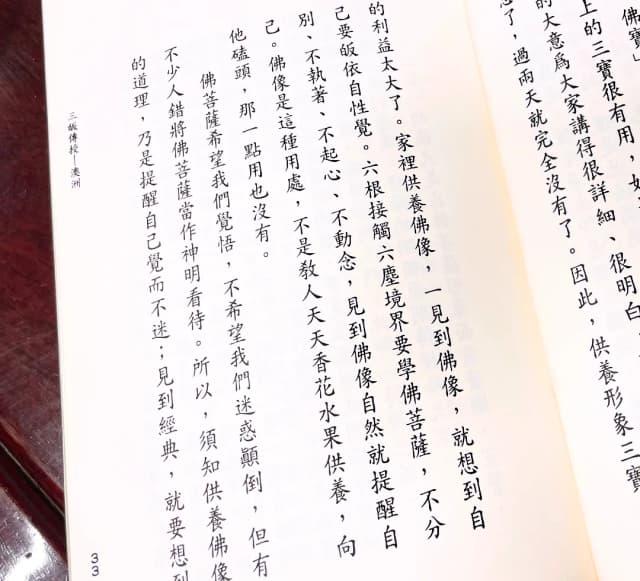 佛寶」
上的三寶很有用，
的大意為大家講得很詳細、很明白
忘了，過兩天就完全沒有了。因此，供養形象三寶
的利益太大了。家裡供養佛像，一見到佛像，就想到自
己要皈依自性覺。六根接觸六塵境界要學佛菩薩，不分
別、不執著、不起心、不動念，見到佛像自然就提醒自
己。佛像是這種用處，不是教人天天香花水果供養，向
他磕頭，那一點用也沒有。
佛菩薩希望我們覺悟，不希望我們迷惑顛倒，但有
不少人錯將佛菩薩當作神明看待。所以，須知供養佛像
的道理，乃是提醒自己覺而不迷；見到經典，就要想到
三皈傳授—澳洲
33